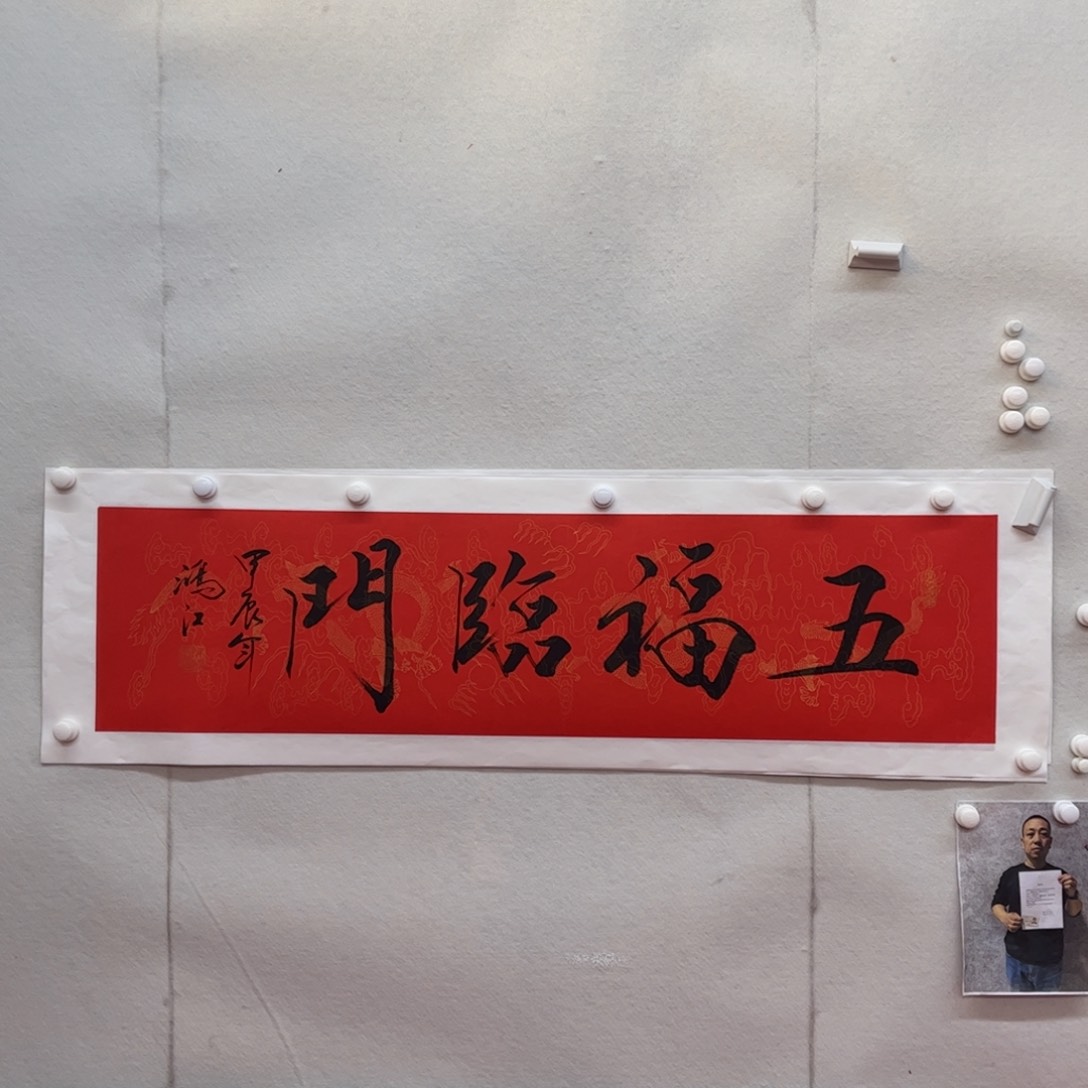 五福臨門
甲辰年
鴻江